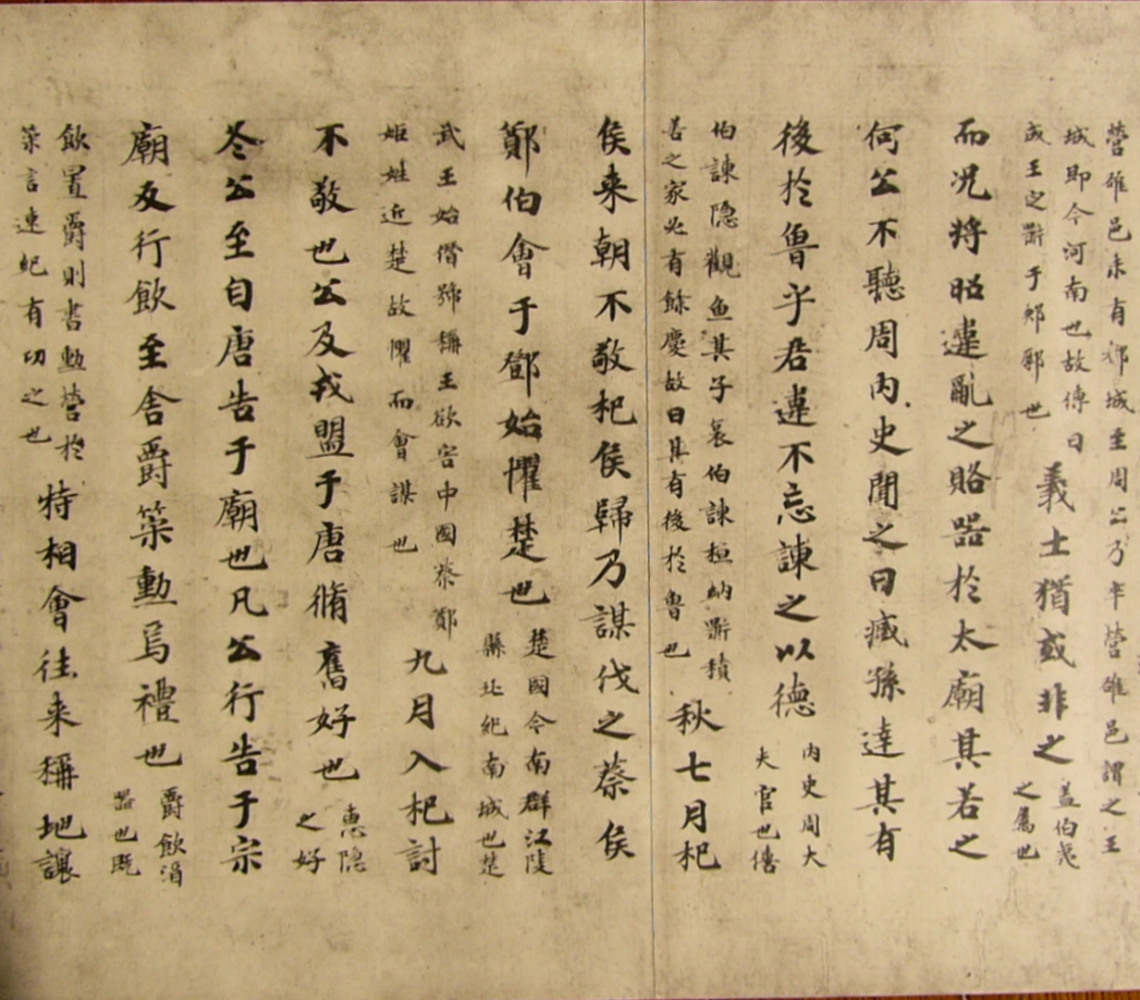 營雒邑未有都城至周公乃卒營雒邑謂之王
城即今河南也故傳曰
成王定鼎于郟鄏也
義士猶或非之
蓋伯夷
之屬也
而况將昭違亂之賂器於太廟其若之
何公不聽周内史聞之曰臧孫達其有
後於魯乎君違不忘諫之以德
内史周大
夫官也僖
伯諫隐觀魚其子哀伯諫桓納鼎積
善之家必有餘慶故曰其有後於魯也
秋七月杞
侯来朝不敬杞侯歸乃謀伐之蔡侯
鄭伯會于鄧始懼楚也
楚國今南群江陵
縣北紀南城也楚
武王始僭號稱王欲害中國蔡鄭
姬姓近楚故懼而會謀也
九月入杞討
不敬也公及戎盟于唐脩舊好也
惠隐
之好
冬公至自唐告于廟也凡公行告于宗
廟反行飲至舍爵策勳焉禮也
爵飲酒
器也既
飲置爵則書勳營於
策言速紀有功之也
特相會往来稱地讓